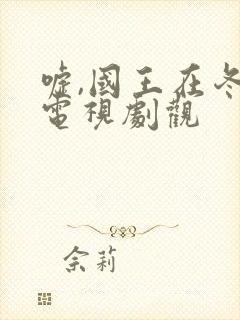 嘘,國王在冬
電視劇觀
佘莉